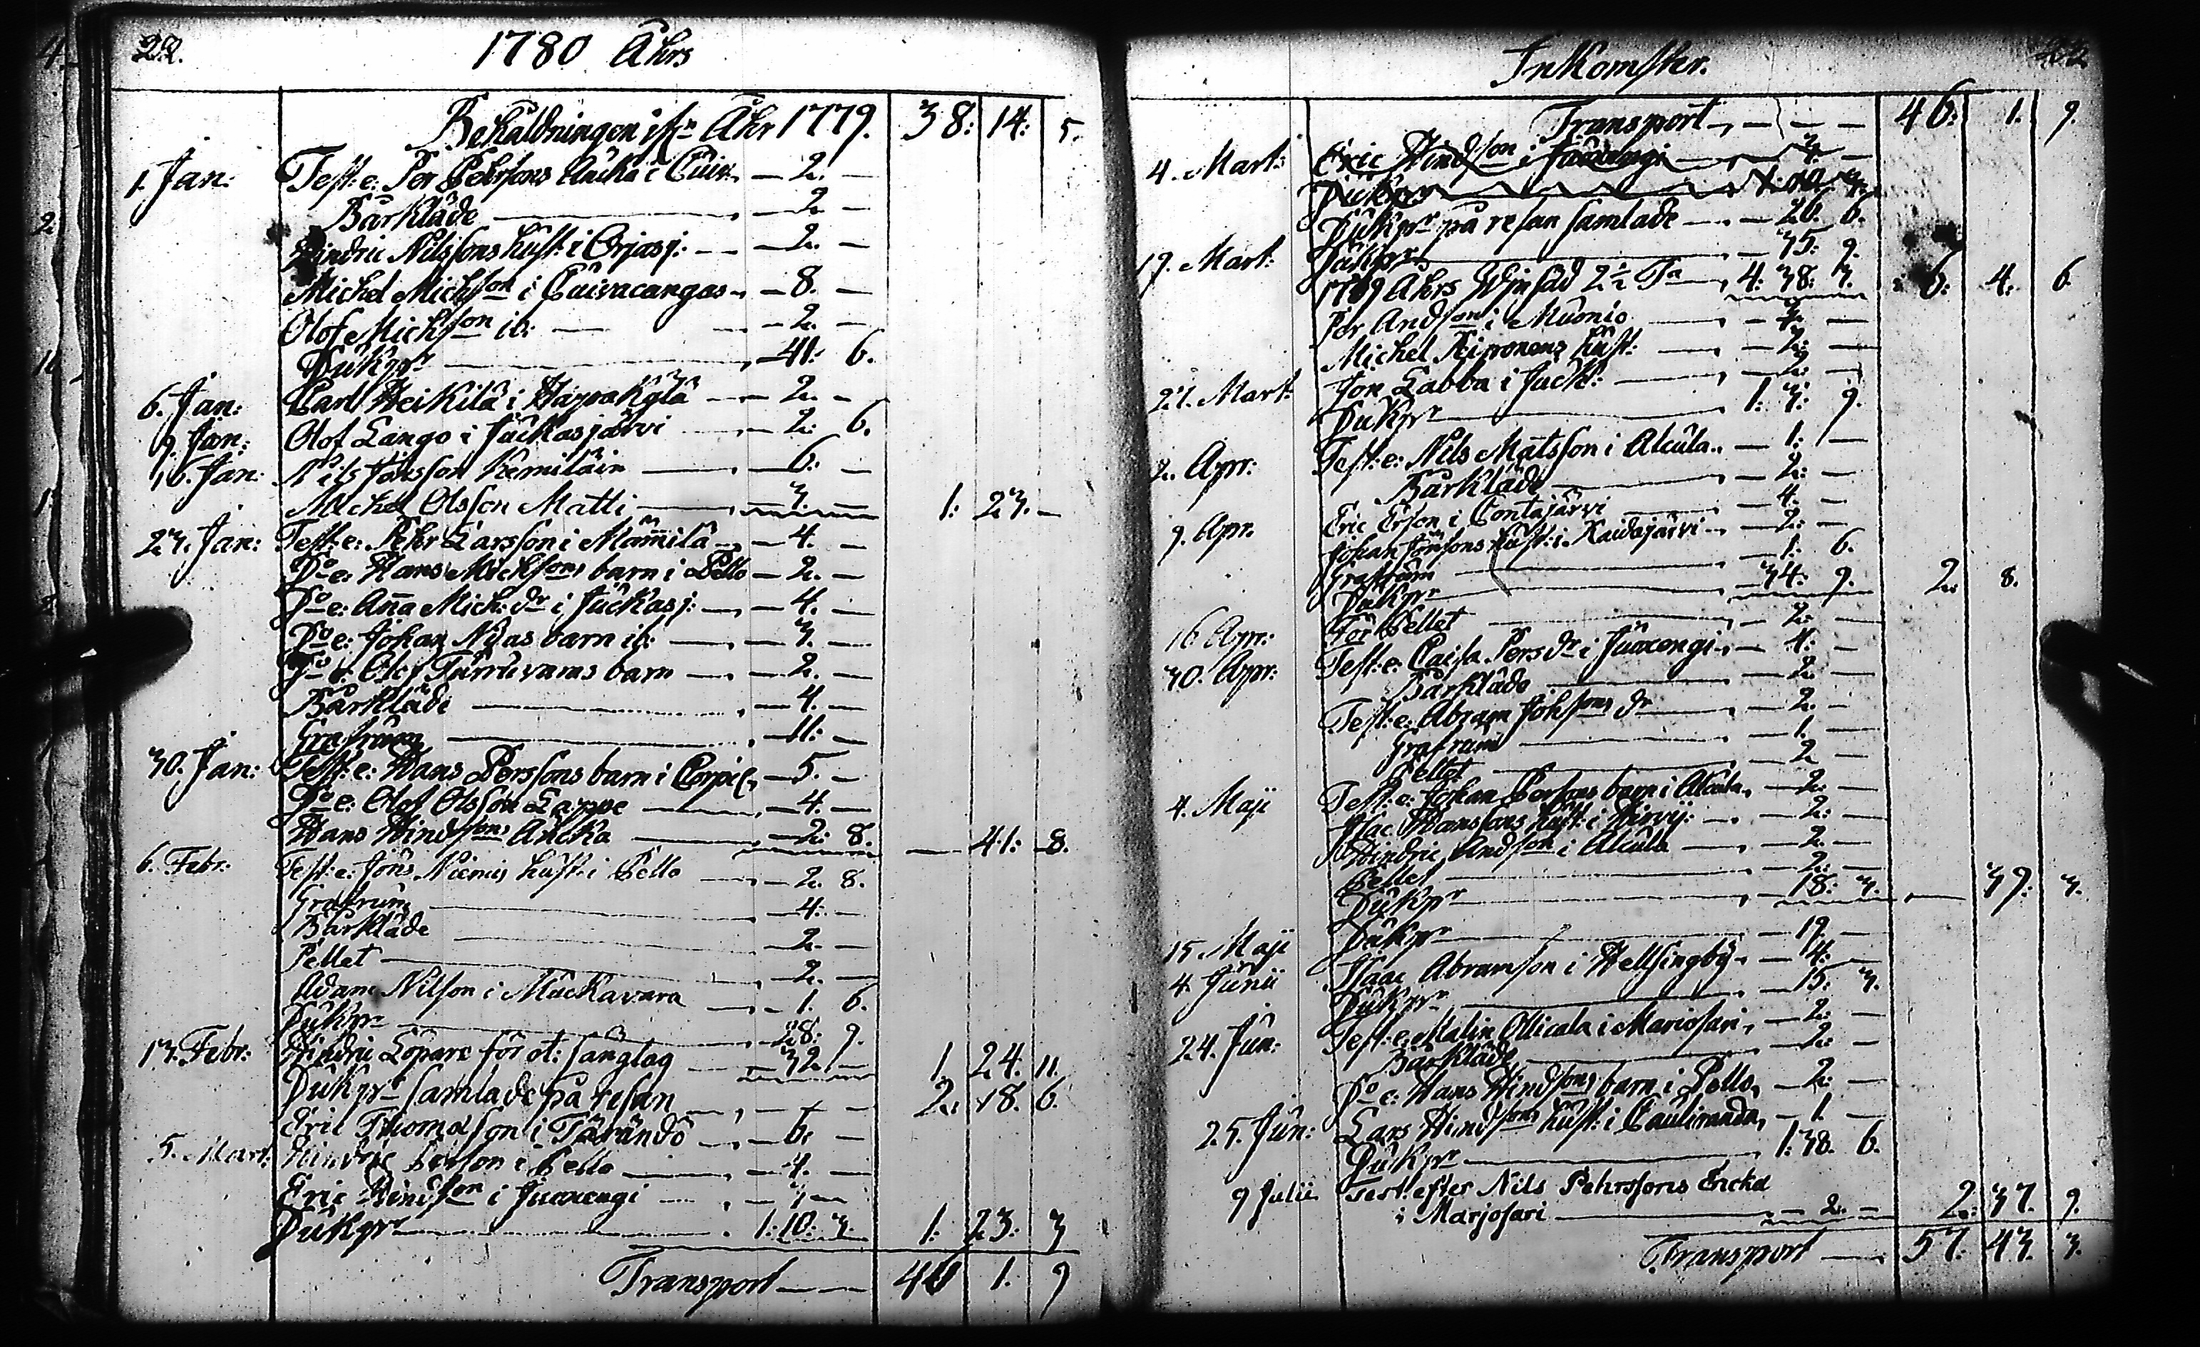 22. 1780 Åhrs
Behåldningen ifr. Åhr 1779. 38: 14: 5.
1. Jan: Test: e: Per Pehrsons Äncka i — 2. —
Bårkläde — 2 —
Hindric Nilssons hust: i — 2. —
Michel Michson i — 8. —
Olof Michson ib: — 2. —
Pückpr — 41: 6.
6. Jan: Carl Heikilä i Haapakylä — 2. —
9. Jan: Olof Lango i Juckasjärvi — 2: 6.
16. Jan: Nils Jönsson Kemiläin — 6: —
Michel Olsson Matti — 3. — 1: 23. —
23. Jan: Test: e: Pehr Larsson i Mämmilä — 4. —
Do e: Hans Michsons barn i Pello — 2. —
Do e: Anna Mich: dr i Juckasj: — 4. —
Do e: Johan Nias barn ib: — 3. —
Do e: Olof Turruvaras barn — 2. —
Bårkläde — 4. —
Grafrum — 11: —
30. Jan: Test: e: Hans Perssons barn i — 5. —
Do e: Olof Olsson Lappe — 4. —
Hans Hindsons Äncka — 2: 8. — 41: 8.
6. Febr: Test: e: Jöns Niemis hust: i Pello — 2. 8.
Grafrum — 4: —
Bårkläde — 2. —
Pellet — 2. —
Adam Nilson i Muckavara — 1. 6.
Pückpr — 28: 9.
13. Febr: Hindric Löpare för ot: sånglag — 32. — 1. 24. 11
Pückpr samlade på resan — 2. 18. 6.
Eric Thomasson i Tärändö — 6. —
5. Mart: Hindric Persson i Pello — 4. —
Eric Hindson i Juoxengi — 3 —
Pückpr — 1: 10: 3. 1: 23: 3
Transport — 46 1. 9
Inkomster.
Transport — 46: 1. 9.
4. Mart: Eric Hindson i Juoxengi — 3. —
Pückpr
Pückpr på resan samlade — 26. 6.
19. Mart: Pückpr — 35: 9.
1779 Åhrs Winsäd 2½ Ta 4: 38: 3. 6: 4. 6.
Per Andson i Muonio — 4. —
Michel Keiponens hust: — 2: —
27. Mart: Jon Labba i Juck: — 2: —
Pückpr — 1: 3: 9.
2. Apr: Test: e: Nils Matsson i Alcula — 1: —
Bårkläde — 2: —
9. Apr. Eric Erson i Contajärvi — 4. —
Johan Jönsons hust: i Kaidajärvi — 2: —
Grafrum — 1: 6.
Pückpr — 34: 9. 2. 8.
16 Apr: För Pellet — 2: —
30. Apr: Test: e: Caisa Pers dr i Juoxengi — 4: —
Bårkläde — 2. —
Test: e: Abram Johsons dr — 2. —
Grafrum — 1. —
Pellet — 2
4. Maji Test: e: Johan Persons barn i Alcula — 2: —
Isac Hanssons hust: i — 2: —
Hindric Andson i Alcula — 2. —
Pellet — 2: —
Pückpr — 18: 3. — 39: 3.
15 Maji Pückpr — 19. —
4. Junii Isaac Abramson i Hellsingby — 4: —
Pückpr — 15. 3.
24. Jun: Test: e: Malin Ollicala i Mariosari — 2: —
Bårkläde — 2: —
Do e: Hans Hindsons barn i Pello — 2: —
25. Jun: Lars Hindsons hust: i — 1. —
Pückpr — 1: 38. 6.
9 Julii Test: efter Nils Pehrssons Encka
i Marjosari — 2. — 2. 37. 9.
Transport — 57. 43. 3.